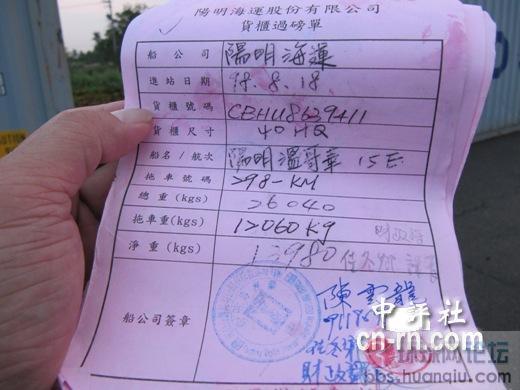 陽明海運股份有限公司
貨櫃過磅單
船公司 陽明海運
進站日期 98.8.18
貨櫃號碼 CBHU8639411
貨櫃尺寸 40HQ
船名/航次 陽明溫哥華 15E
拖車號碼 298-KM
總重(kgs) 26040
拖車重(kgs) 12060Kg
淨重(kgs) 13980
船公司簽章
陳雲龍
中評社
cn-rn.com
环球网论坛
bbs.huanqiu.com